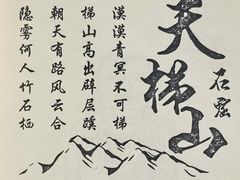 天梯山
石窟
漠漠青冥不可梯
梯山高出辟层蹊
朝天有路风云合
隐雾何人竹石栖